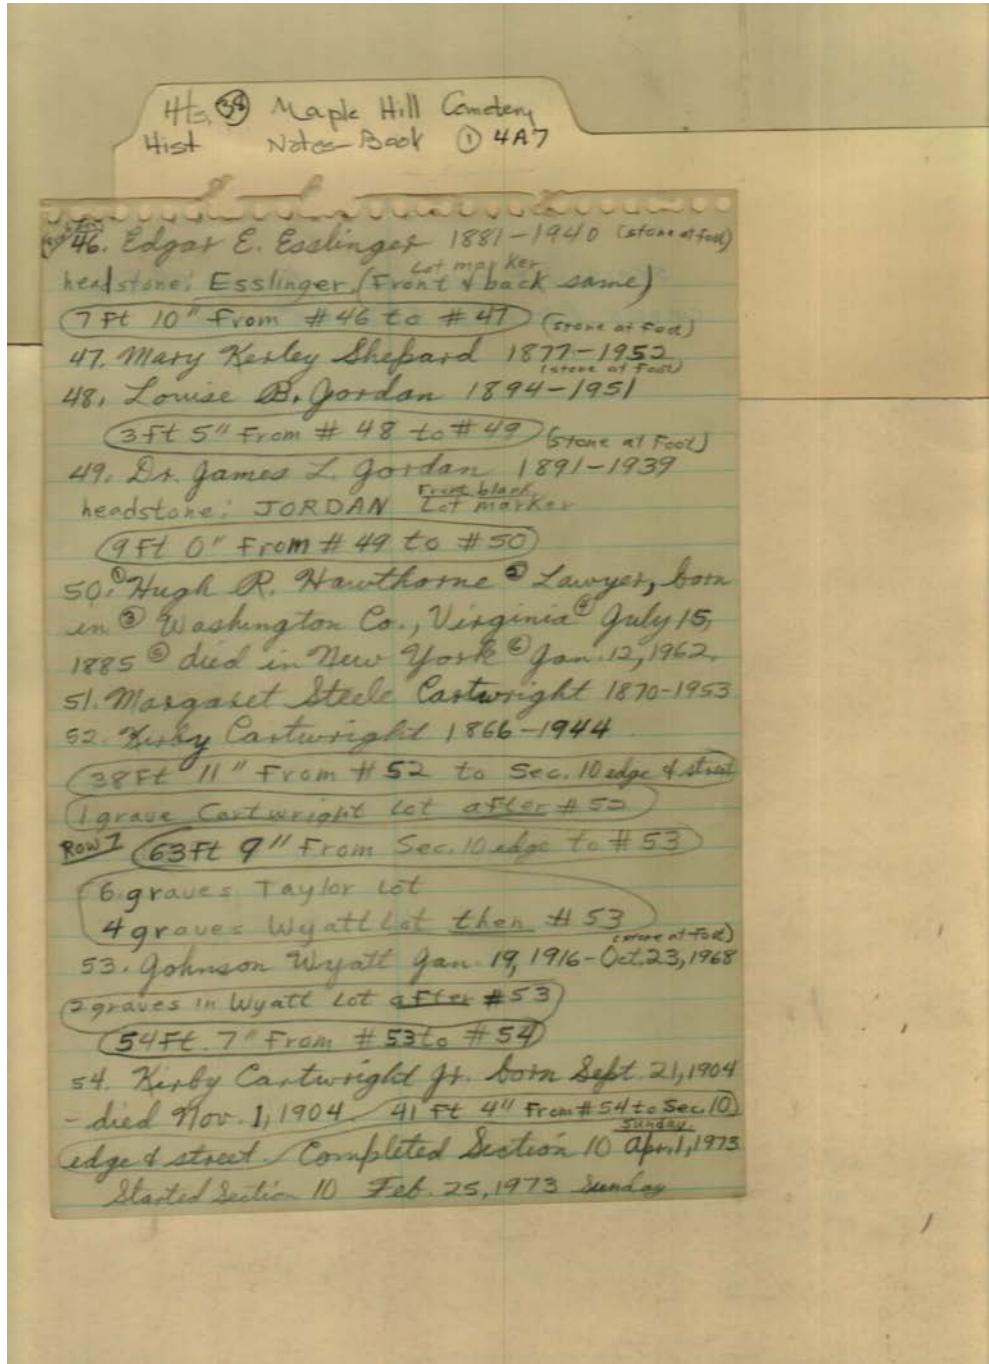 Hts. 38 Maple Hill Cemetery
Hist Notes-Book ① 4A7
46. Edgar E. Esslinger 1881-1940 (stone at foot)
Lot marker
headstone: Esslinger (Front & back same)
7 Ft 10" From #46 to #47 (stone at foot)
47. Mary Kerley Shepard 1877-1952
(stone at foot)
48. Louise B. Jordan 1894-1951
3 ft 5" From # 48 to #49 (stone at Foot)
49. Dr. James L. Jordan 1891-1939
headstone: JORDAN Front blank
Lot marker
9 Ft 0" From # 49 to #50
50. ① Hugh R. Hawthorne ② Lawyer, born
in ③ Washington Co., Virginia ④ July 15,
1885 ⑤ died in New York ⑥ Jan. 12, 1962.
51. Margaret Steele Cartwright 1870-1953
52. Kirby Cartwright 1866-1944
38 Ft 11" From #52 to Sec. 10 edge & street
1 grave Cartwright Lot after #52
Row 7 63 Ft 9" From Sec. 10 edge to #53
6 graves Taylor Lot
4 graves Wyatt Lot then #53
(stone at foot)
53. Johnson Wyatt Jan. 19, 1916-Oct. 23, 1968
2 graves in Wyatt Lot after #53
54 Ft. 7" From #53 to #54
54. Kirby Cartwright Jr. born Sept. 21, 1904
- died Nov. 1, 1904. 41 Ft 4" From #54 to Sec. 10
edge & street. Completed Section 10 Sunday Apr. 1, 1973
Started Section 10 Feb. 25, 1973 Sunday